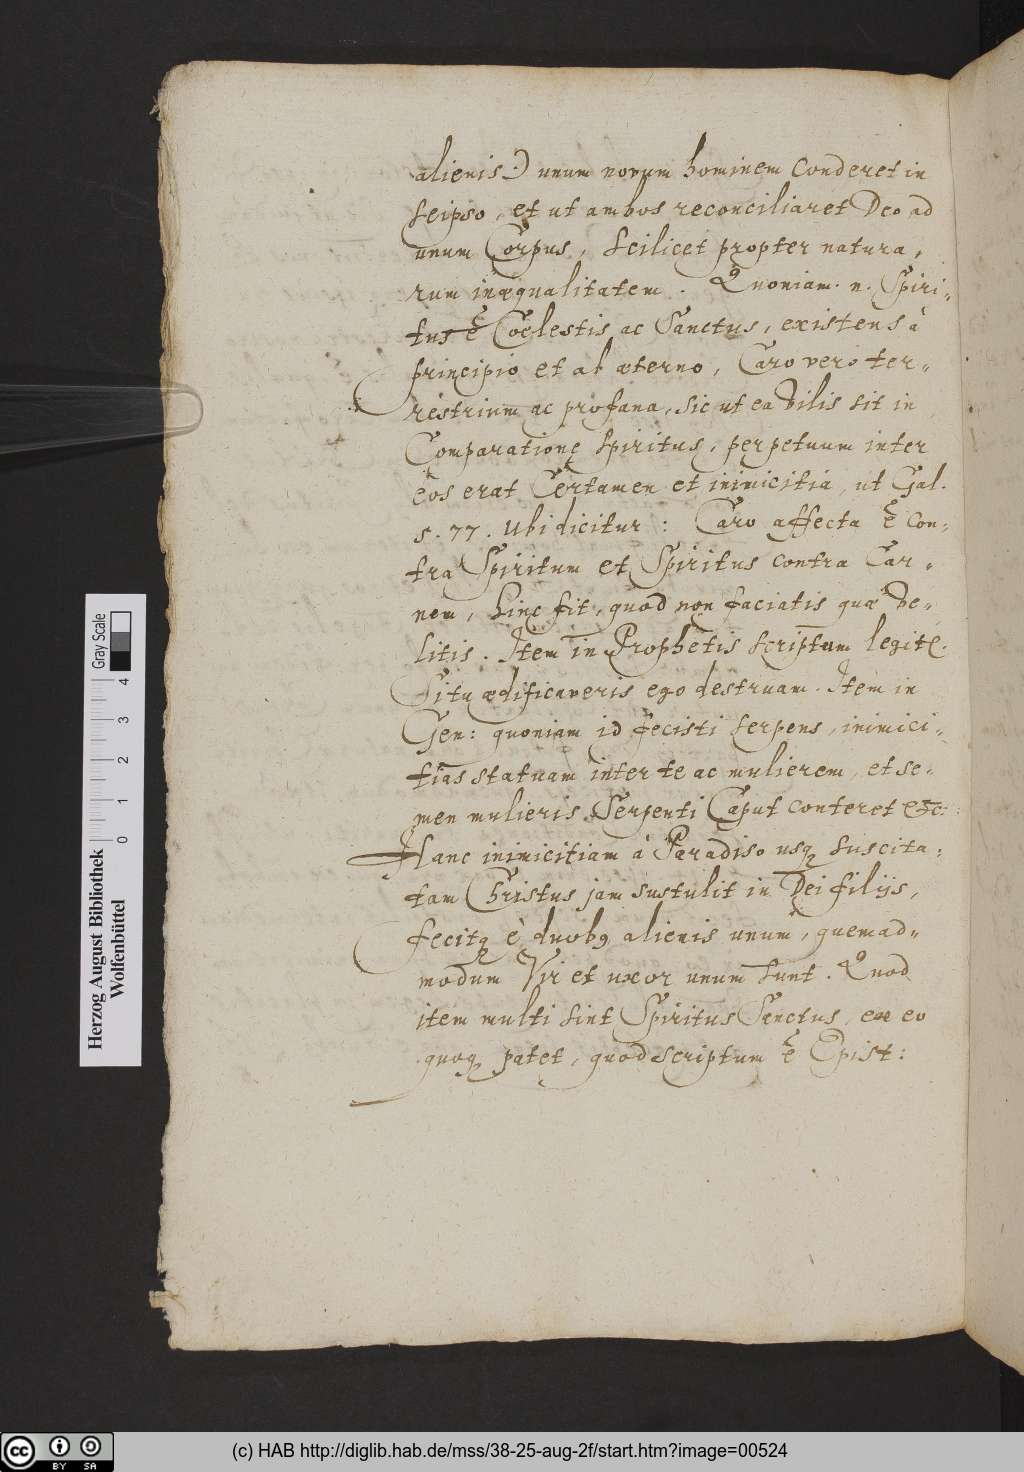 alienis.) unum novum hominem Conderet in
seipso, et ut ambos reconciliaret Deo ad
unum Corpus, scilicet propter natura,
rum inæqualitatem. Quoniam. n. Spiri„
tus ẽ Coelestis ac Sanctus, existens à
principio et ab æterno, Caro vero ter„
restrium ac profana, sic ut ea vilis sit in
Comparatione Spiritus, perpetuum inter
eos erat Certamen et inimicitia, ut Gal.
5. 77. Ubi dicitur: Caro affecta ẽ con„
tra Spiritum et Spiritus contra Car„
nem, hinc fit, quod non faciatis quæ ve„
litis. Item in Prophetis scriptum legite.
Si tu ædificaveris ego destruam. Item in
Gen: quoniam id fecisti serpens, inimici„
tias statuam inter te ac mulierem, et se„
men mulieris Serpenti Caput conteret etc:
Hanc inimicitiam à Paradiso usq suscita,
tam Christus jam sustulit in Dei filijs,
fecitq è duobq alienis unum, quemad„
modum Vir et uxor unum sunt. Quod
item multi sint Spiritus Sanctus, ex eo
quoq patet, quod scriptum ẽ Epist:
Herzog August Bibliothek
Wolfenbüttel
Gray Scale
0 1 2 3 4
cc BY SA
(c) HAB http://diglib.hab.de/mss/38-25-aug-2f/start.htm?image=00524